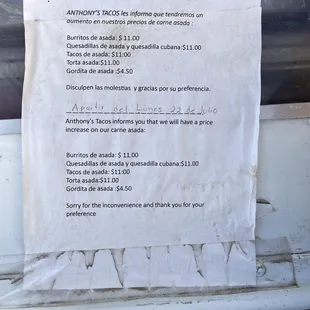 ANTHONY'S TACOS les informa que tendremos un
aumento en nuestros precios de carne asada :
Burritos de asada: $ 11.00
Quesadillas de asada y quesadilla cubana:$11.00
Tacos de asada: $11:00
Torta asada:$11.00
Gordita de asada :$4.50
Disculpen las molestias y gracias por su preferencia.
Apartir del Lunes 22 de Julio
Anthony's Tacos informs you that we will have a price
increase on our carne asada:
Burritos de asada: $ 11.00
Quesadillas de asada y quesadilla cubana:$11.00
Tacos de asada: $11:00
Torta asada:$11.00
Gordita de asada :$4.50
Sorry for the inconvenience and thank you for your
preference